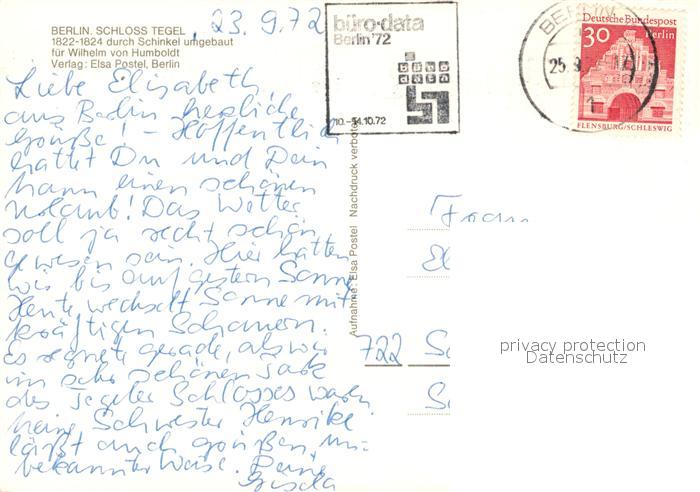 BERLIN. SCHLOSS TEGEL
1822-1824 durch Schinkel umgebaut
für Wilhelm von Humboldt
Verlag: Elsa Postel, Berlin
23.9.72
Liebe Elisabeth,
aus Berlin herzliche
Grüße! - Hoffentlich
hattet Du und Dein
Mann einen schönen
Urlaub! Das Wetter
soll ja recht schön
gewesen sein. Hier hatten
wir bis auf gestern Sonne
Heute wechselt Sonne mit
kräftigen Schauern.
Es regnete gerade, als wir
im sehr schönen Park
des Tegeler Schlosses waren
Meine Schwester Henrike
läßt auch grüßen, un-
bekannter Weise. Deine
Gisela
Aufnahme: Elsa Postel Nachdruck verboten
büro-data
Berlin '72
büro
data
10.-14.10.72
BERLIN
25.9.
1
Deutsche Bundespost
30 Berlin
FLENSBURG/SCHLESWIG
Frau
El
722 Sc
privacy protection
Datenschutz